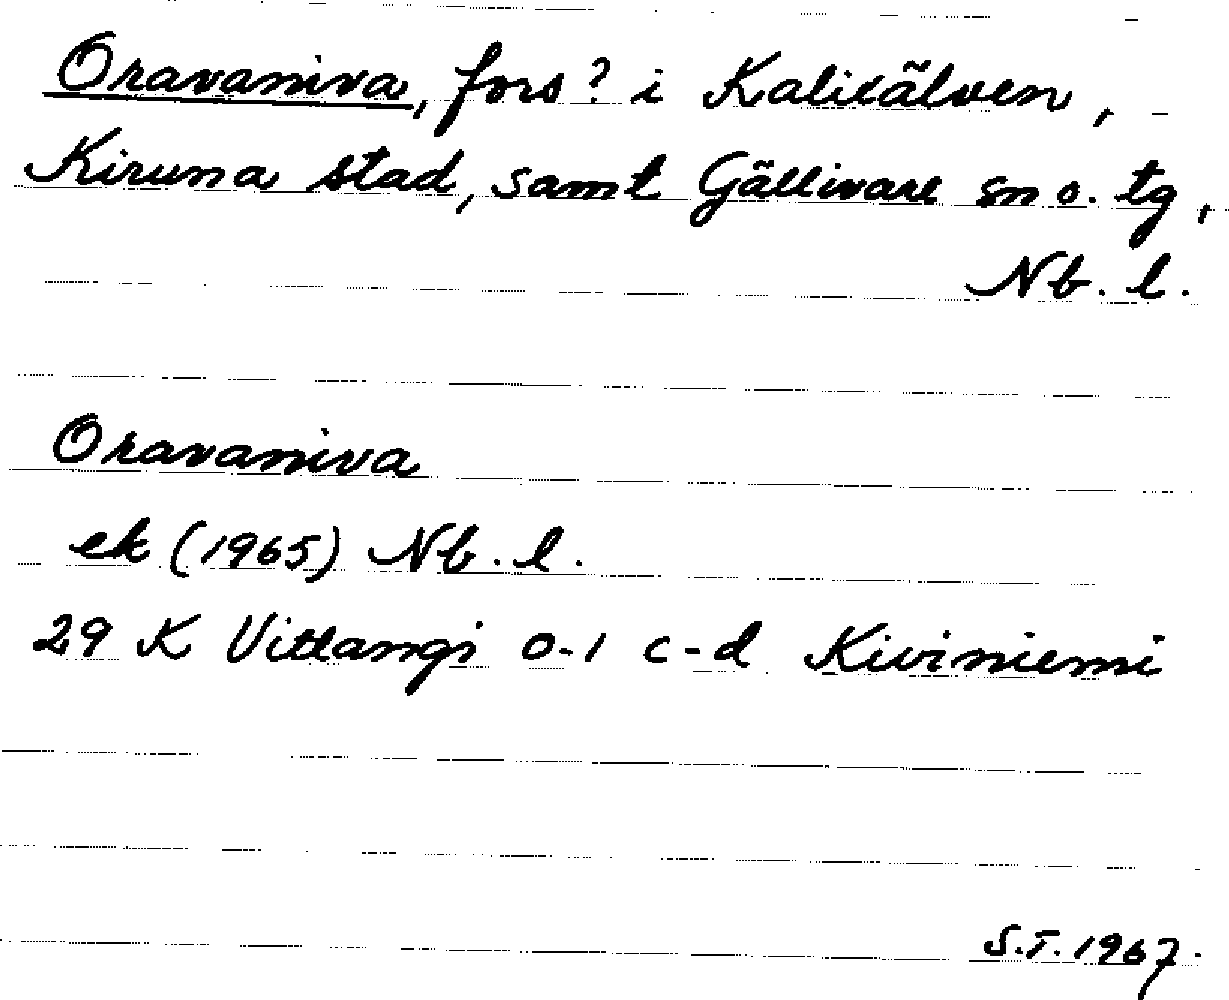 Oravaniva, fors? i Kalixälven,
Kiruna stad, samt Gällivare sn o. tg,
Nb. l.
Oravaniva
ek (1965) Nb. l.
29 K Vittangi 0-1 c-d Kiviniemi
S.T. 1967.